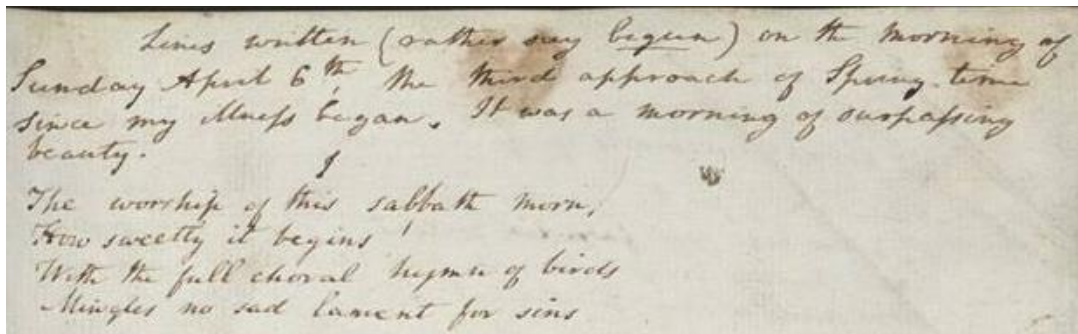 Lines written (rather say begun) on the morning of
Sunday April 6th, the third approach of Spring-time
since my illness began. It was a morning of surpassing
beauty.
1
The worship of this sabbath morn,
How sweetly it begins
With the full choral hymn of birds
Mingles no sad lament for sins